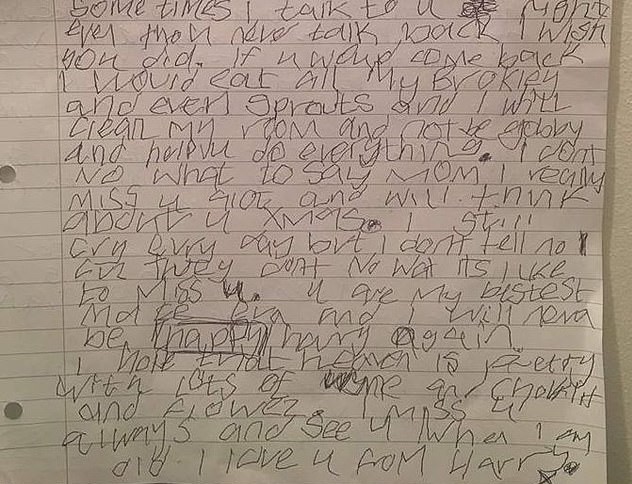 Some times I talk to u Mom
even tho u neva talk back I wish
you did. If u wud come back
I would eat all my Brokley
and even sprouts and I will
clean my room and not be gobby
and help u do everything. I dont
no what to say Mom I really
miss u alot and will think
about u xmas. I still
cry evry day but I dont tell no 1
coz they dont no wat its like
to miss u. u are my bestest
mate eva and I will neva
be happy again
I hope that heaven is pretty
with lots of and
and flowez. I miss u
always and see u when I am
old I love u from Harry x